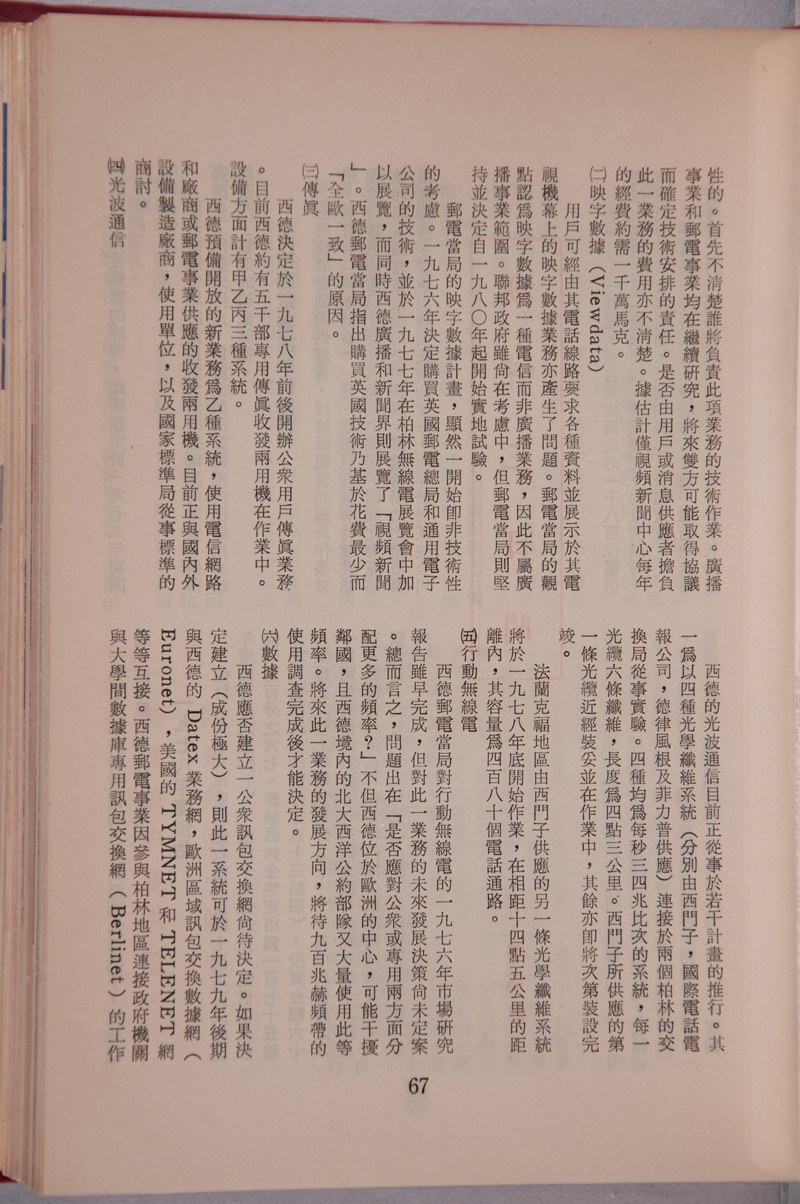 性的。首先不清楚誰將負責此項業務的技術作業。廣播
事業和郵電事業均在繼續研究，將來雙方可能取得協議
而確定技術安排的責任。是否由用戶或消息供應者擔負
此一業務的費用亦不清楚。據估計僅視頻新聞中心每年
的經費約需一千萬馬克。
㈡映字數據（Viewdata）
用戶可經由其電話線路要求各種資料並展示於其電
視機幕上的映字數據業務亦產生了問題。郵電當局的觀
點認爲映字數據爲一種電信而非廣播業務，因此不屬廣
播事業範圍。聯邦政府雖尙在考慮中，但郵電當局則堅
持並決定自一九八〇年起開始實地試驗。
郵電當局的映字數據計畫，顯然一開始卽非技術性
的考慮。一九七六年決定購買英國郵電總局和通用電子
公司的技術，並於一九七七年在柏林無線電展覽會中加
以展覽，而同時西德廣播和新聞界則展覽了「視頻新聞
」。西德郵電當局指出購買英國技術乃基於花費最少而
「全歐一致」的原因。
㈢傳眞
西德決定於一九七八年前後開辦公衆用戶傳眞業務
。目前西德約有五千部專用傳眞收發兩用機在作業中。
設備方面計有甲乙丙三種系統。
西德預備開放的新業務爲乙種系統，使用電信網路
和廠商或郵電事業供應的收發兩用機。目前正與國內外
設備製造廠商，使用單位，以及國家標準局從事標準的
商討。
㈣光波通信
西德的光波通信目前正從事於若干計畫的推行。其
一爲以四種光學纖維系統（分別由西門子，國際電話電
報公司，德律風根及菲力普供應）連接於兩個柏林的交
換局從事實驗。四種均爲每秒三四兆比次的系統，每一
光纜六條纖維，長度爲四點三公里。西門子所供應的第
一條光纜近經裝妥並在作業中，其餘亦卽將次第裝設完
竣。
法蘭克福地區由西門子供應的另一條光學纖維系統
將於一九七八年底開始作業，在相距十四點五公里的距
離內，其容量爲四百八十個電話通路。
㈤行動無線電
西德郵電當局對行動無線電的一九七六年市場研究
報告雖早完成，但對此一業務的未來發展決策尙未定案
。總而言之，問題出在「是否應對公衆或專用兩方面分
配更多的頻率？」不但西德位於歐洲的中心，可能干擾
鄰國，且西德境內的北大西洋公約部隊又大量使用此等
頻率。將來此一業務的發展方向，將待九百兆赫頻帶的
使用調查完成後才能決定。
㈥數據
西德應否建立一公衆訊包交換網尙待決定。如果決
定建立（成份極大），則此一系統可於一九七九年後期
與西德的 Datex 業務網，歐洲區域訊包交換數據網（
Euronet），美國的 TYMNET 和 TELENET 網
等等互接。西德郵電事業因參與柏林地區連接政府機關
與大學間數據庫專用訊包交換網（Berlinet）的工作
67